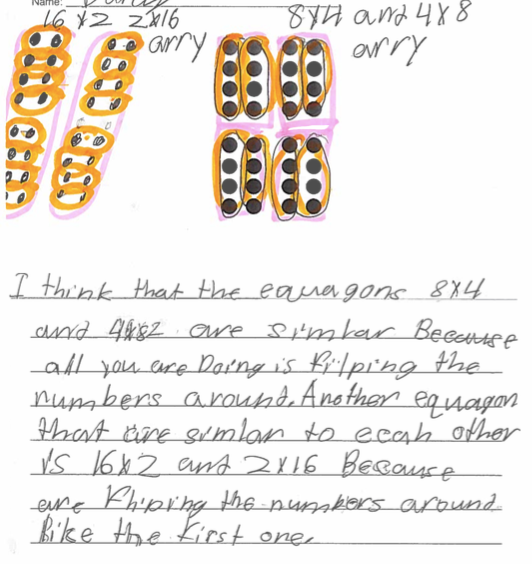 Name:
16 x2 2x16
arry
8x4 and 4x8
arry
I think that the equagons 8x4
and are simlar Because
all you are Doing is the
numbers around. Another equagon
that are simlar to ecah other
is 16x2 and 2x16 Because
are the numbers around
like the first one.